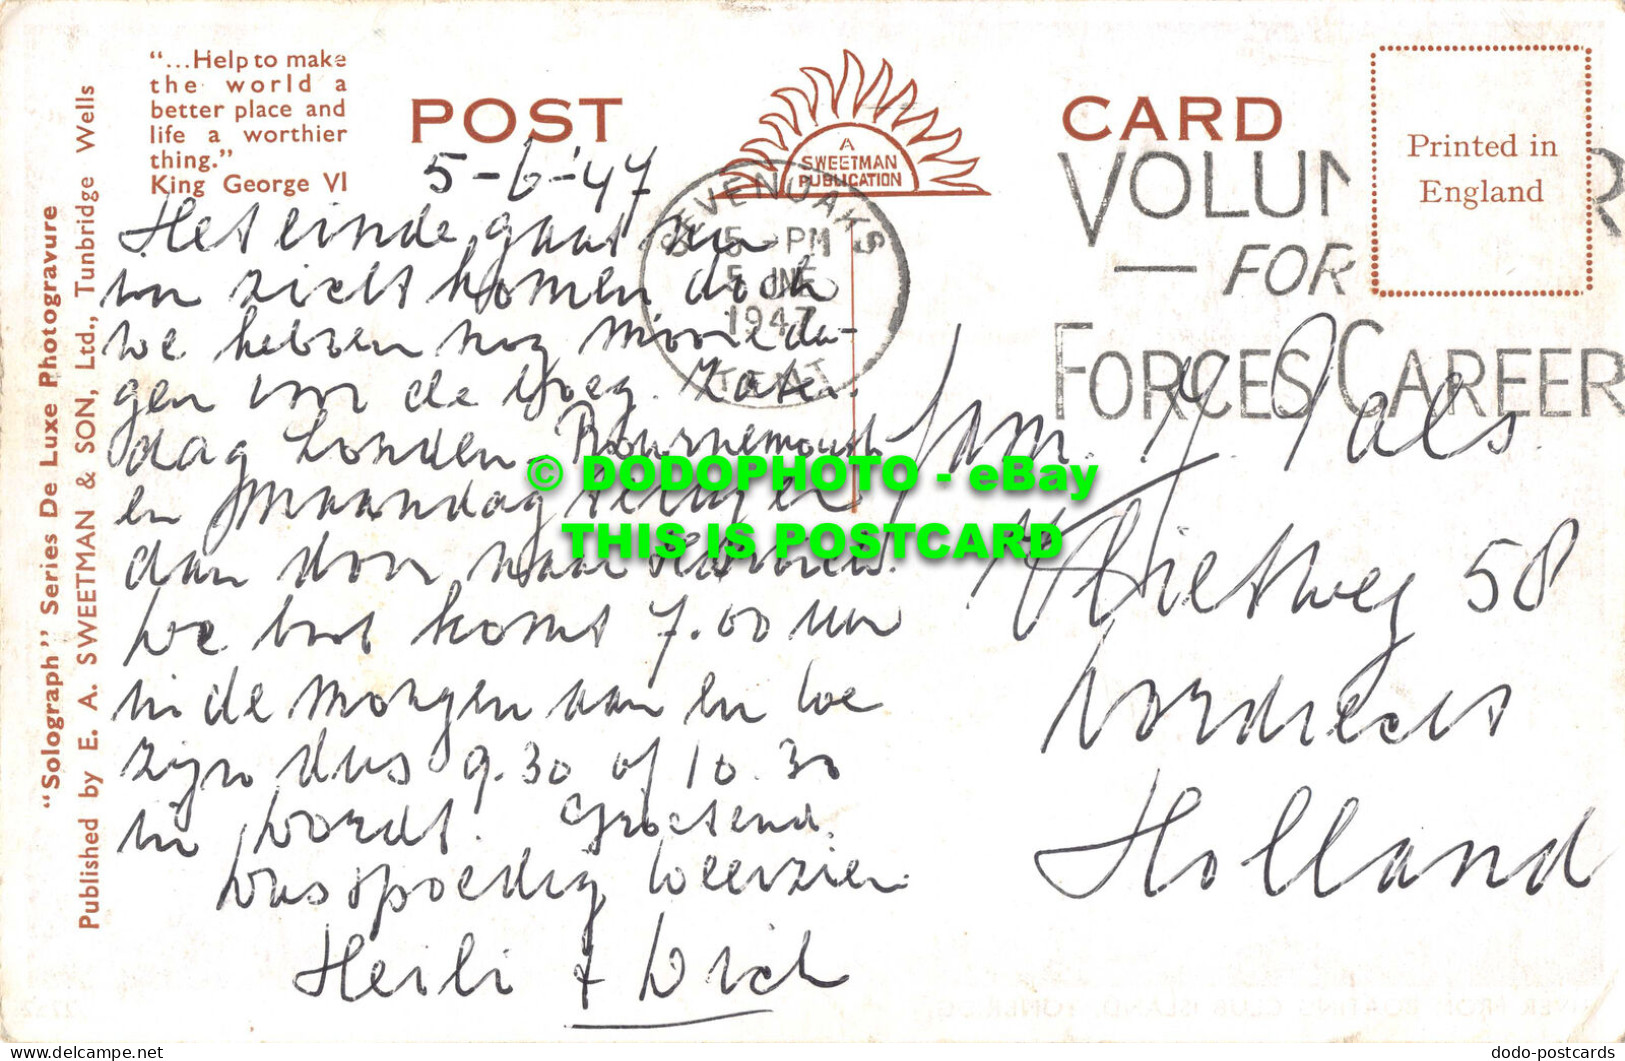 "...Help to make
the world a
better place and
life a worthier
thing."
King George VI
POST CARD
A
SWEETMAN
PUBLICATION
Printed in
England
"Solograph" Series De Luxe Photogravure
Published by E. A. SWEETMAN & SON, Ltd., Tunbridge Wells
SEVENOAKS
5 PM
5 JNE
1947
KENT
VOLUN R
FOR
FORCES CAREER
5-6-'47
Het einde gaat nu
in zicht komen doch
we hebben nog mooie da-
gen voor de boeg. Zater-
dag Londen - Bournemouth
en Maandag terug en
dan door naar
We boot komt 7.00 uur
in de morgen aan en we
zijn dus 9.30 of 10.30
in Dordt. Groetend.
Dus spoedig weerzien.
Heili + Dick
Fam. Pals.
Vlietweg 58
Dordrecht
Holland
© DODOPHOTO - eBay
THIS IS POSTCARD
RIVER FROM BOATING CLUB ISLAND, TONBRIDGE
dodo-postcards
www.delcampe.net